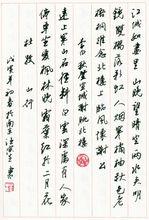 江城如畫裏山晚望晴空兩水夾明
鏡雙橋落彩虹人煙寒橘柚秋色老
梧桐誰念北樓上臨風懷謝公
李白秋登宣城謝朓北樓
遠上寒山石徑斜白雲深處有人家
停車坐愛楓林晚霜葉紅於二月花
杜牧 山行